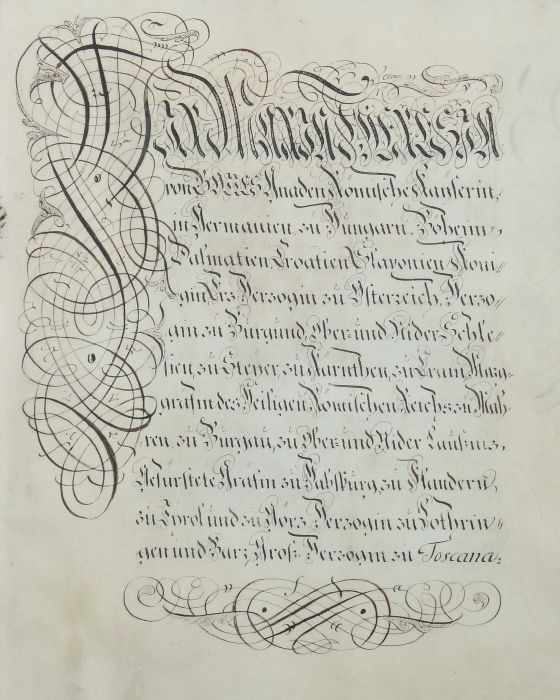 Wir Maria Theresia
von GOTTES Gnaden Römische Kayserin,
in Germanien zu Hungarn, Böheim,
Dalmatien Croatien Slavonien Köni-
gin Erz Herzogin zu Österreich, Herzo-
gin zu Burgund, Ober und Nider Schle-
sien, zu Steyer, zu Karnthen, zu Crain Marg-
grafin des Heiligen Römischen Reichs zu Mäh-
ren, zu Burgau, zu Ober und Nider Lausniz,
Gefürstete Gräfin zu Habsburg, zu Flandern,
zu Tyrol und zu Görz, Herzogin zu Lothrin-
gen und Bar, Groß Herzogin zu Toscana.